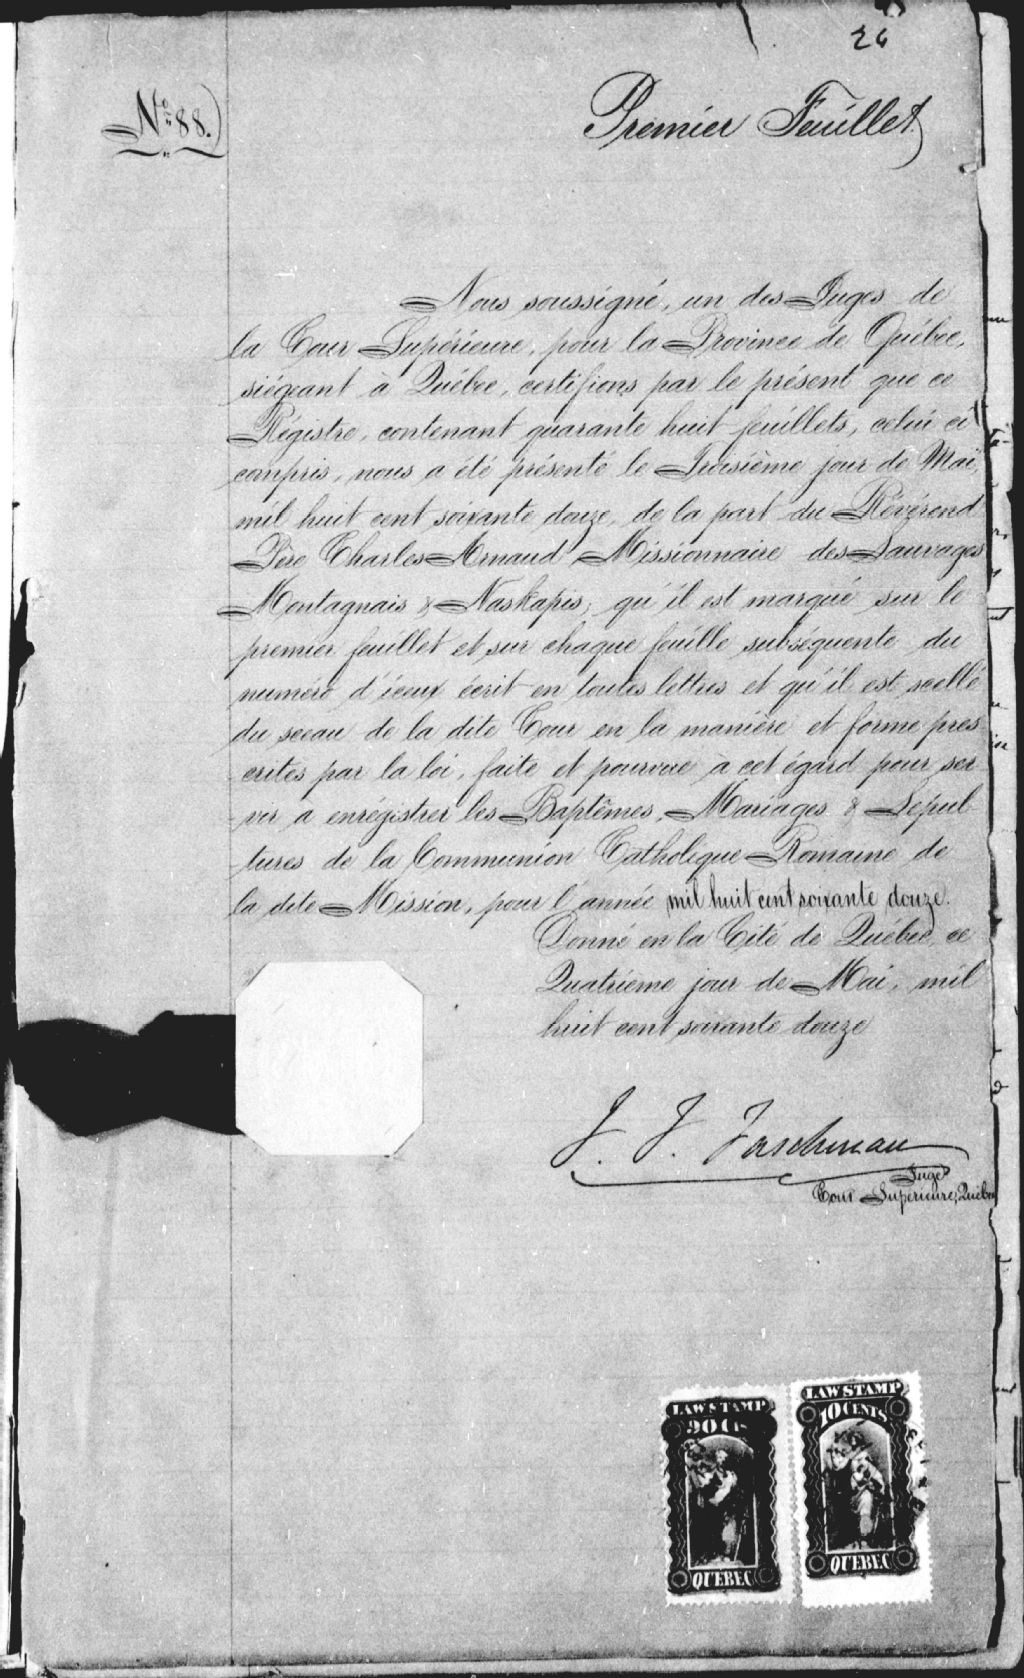 26
No 88.
Premier Feuillet
Nous soussigné, un des Juges de
la Cour Supérieure, pour la Province de Québec,
siégeant à Québec, certifions par le présent que ce
Régistre, contenant quarante huit feuillets, celui ci
compris, nous a été présenté le Troisième jour de Mai,
mil huit cent soixante douze, de la part du Révérend
Père Charles Arnaud Missionnaire des Sauvages
Montagnais & Naskapis, qu'il est marqué sur le
premier feuillet et sur chaque feuille subséquente du
numéro d'iceux écrit en toutes lettres et qu'il est scellé
du sceau de la dite Cour en la manière et forme pres
crites par la loi, faite et pourvue à cet égard pour ser
vir a enrégistrer les Baptêmes, Mariages & Sépul
tures de la Communion Catholique Romaine de
la dite Mission, pour l'année mil huit cent soixante douze.
Donné en la Cité de Québec, ce
Quatrième jour de Mai, mil
huit cent soixante douze
J. T. Taschereau
Juge
Cour Supérieure, Québec
LAW STAMP
LAW STAMP
10 CENTS
QUEBEC
QUEBEC